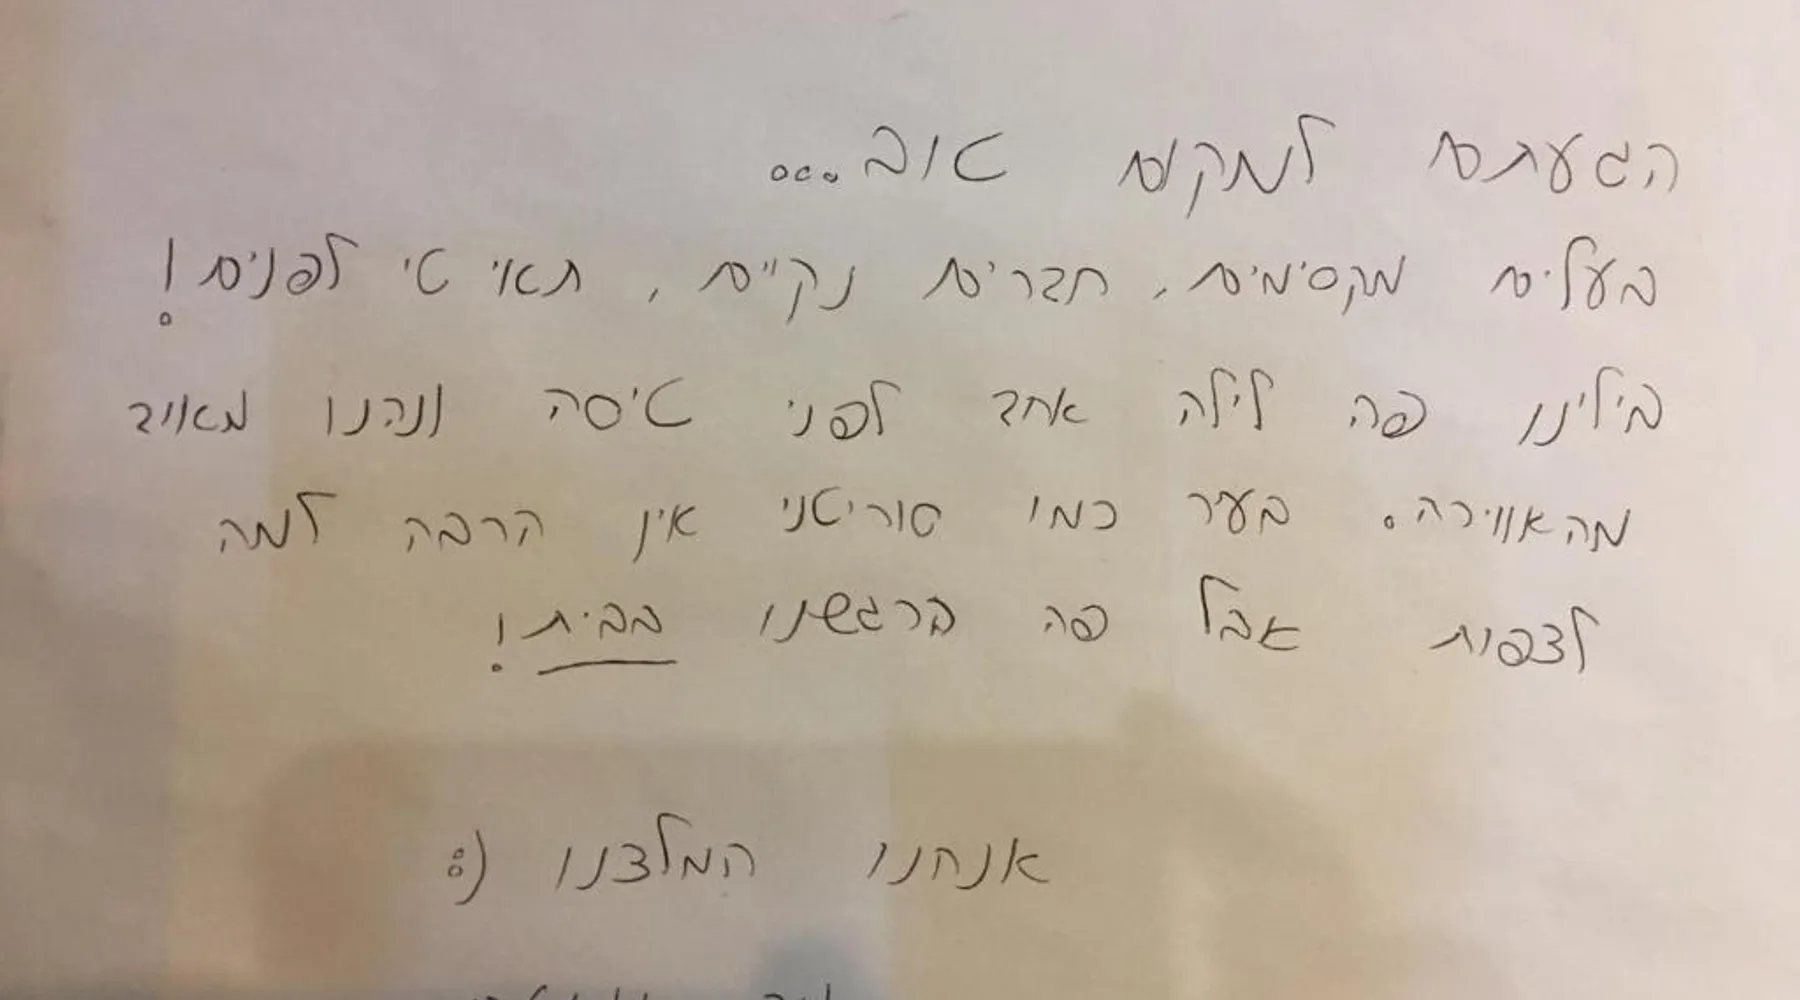 הגעתם למקום טוב...
בעלים מקסימים, חברים נקיים, תאי טי לפנים!
בילינו פה לילה אחד לפני טיסה ונהנו מאויב
מהאווירה. בעיר כמו סוריטני אין הרבה למה
לצפות אבל פה הרגשנו בבית!
אנחנו המלצנו (: